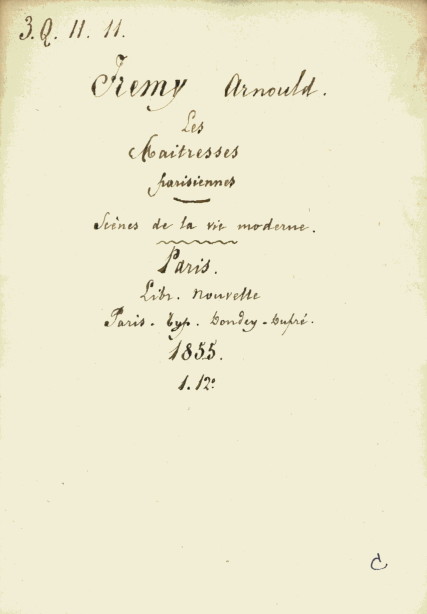 3. Q. 11. 11.
Fremy Arnould.
Les
Maitresses
parisiennes
Scènes de la vie moderne.
Paris.
Libr. Nouvelle
Paris. Typ. Dondey-Dupré.
1855.
1. 12º
C